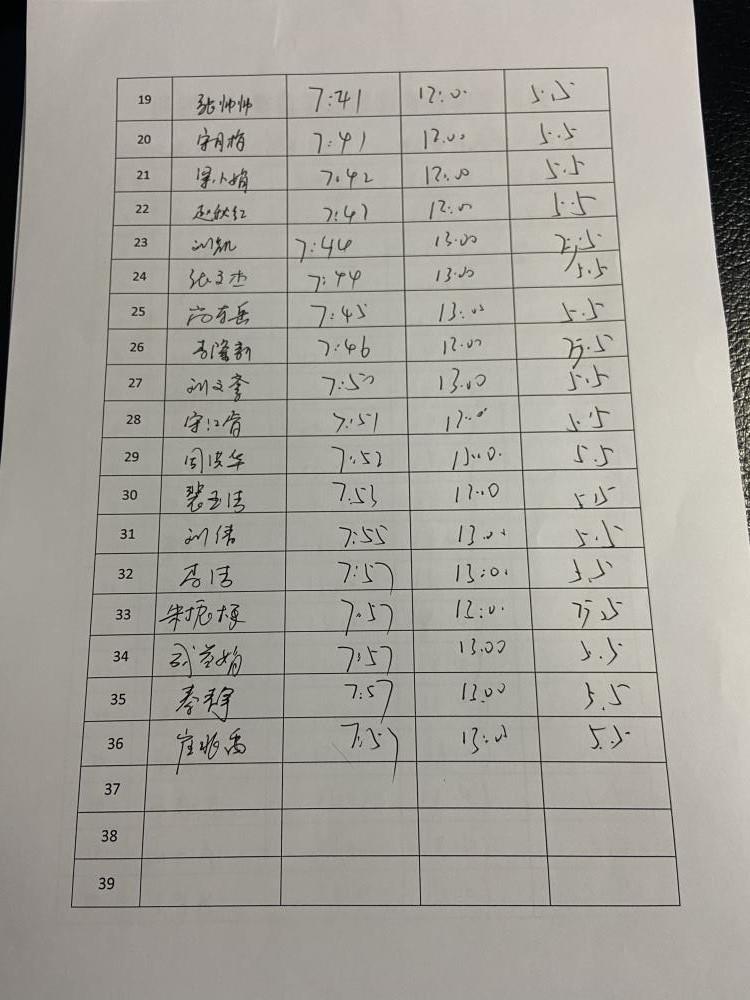 19 张帅帅 7:41 12:00 5.5
20 宋月梅 7:41 12.00 5.5
21 梁小娟 7:42 12.00 5.5
22 赵秋红 7:43 12:00 5.5
23 刘凯 7:44 13.00 5.5
24 张文杰 7:44 13.00 5.5
25 7:45 13:00 5.5
26 李隆新 7:46 12.00 5.5
27 刘文奎 7:50 13.00 5.5
28 7:51 5.5
29 周洪华 7:52 13.00 5.5
30 裴玉洁 7:53 13.00 5.5
31 刘伟 7:55 13.00 5.5
32 李洁 7:57 13:00 5.5
33 7:57 5.5
34 7:57 13.00 5.5
35 秦菲 7:57 13.00 5.5
36 7:57 13:00 5.5
37
38
39